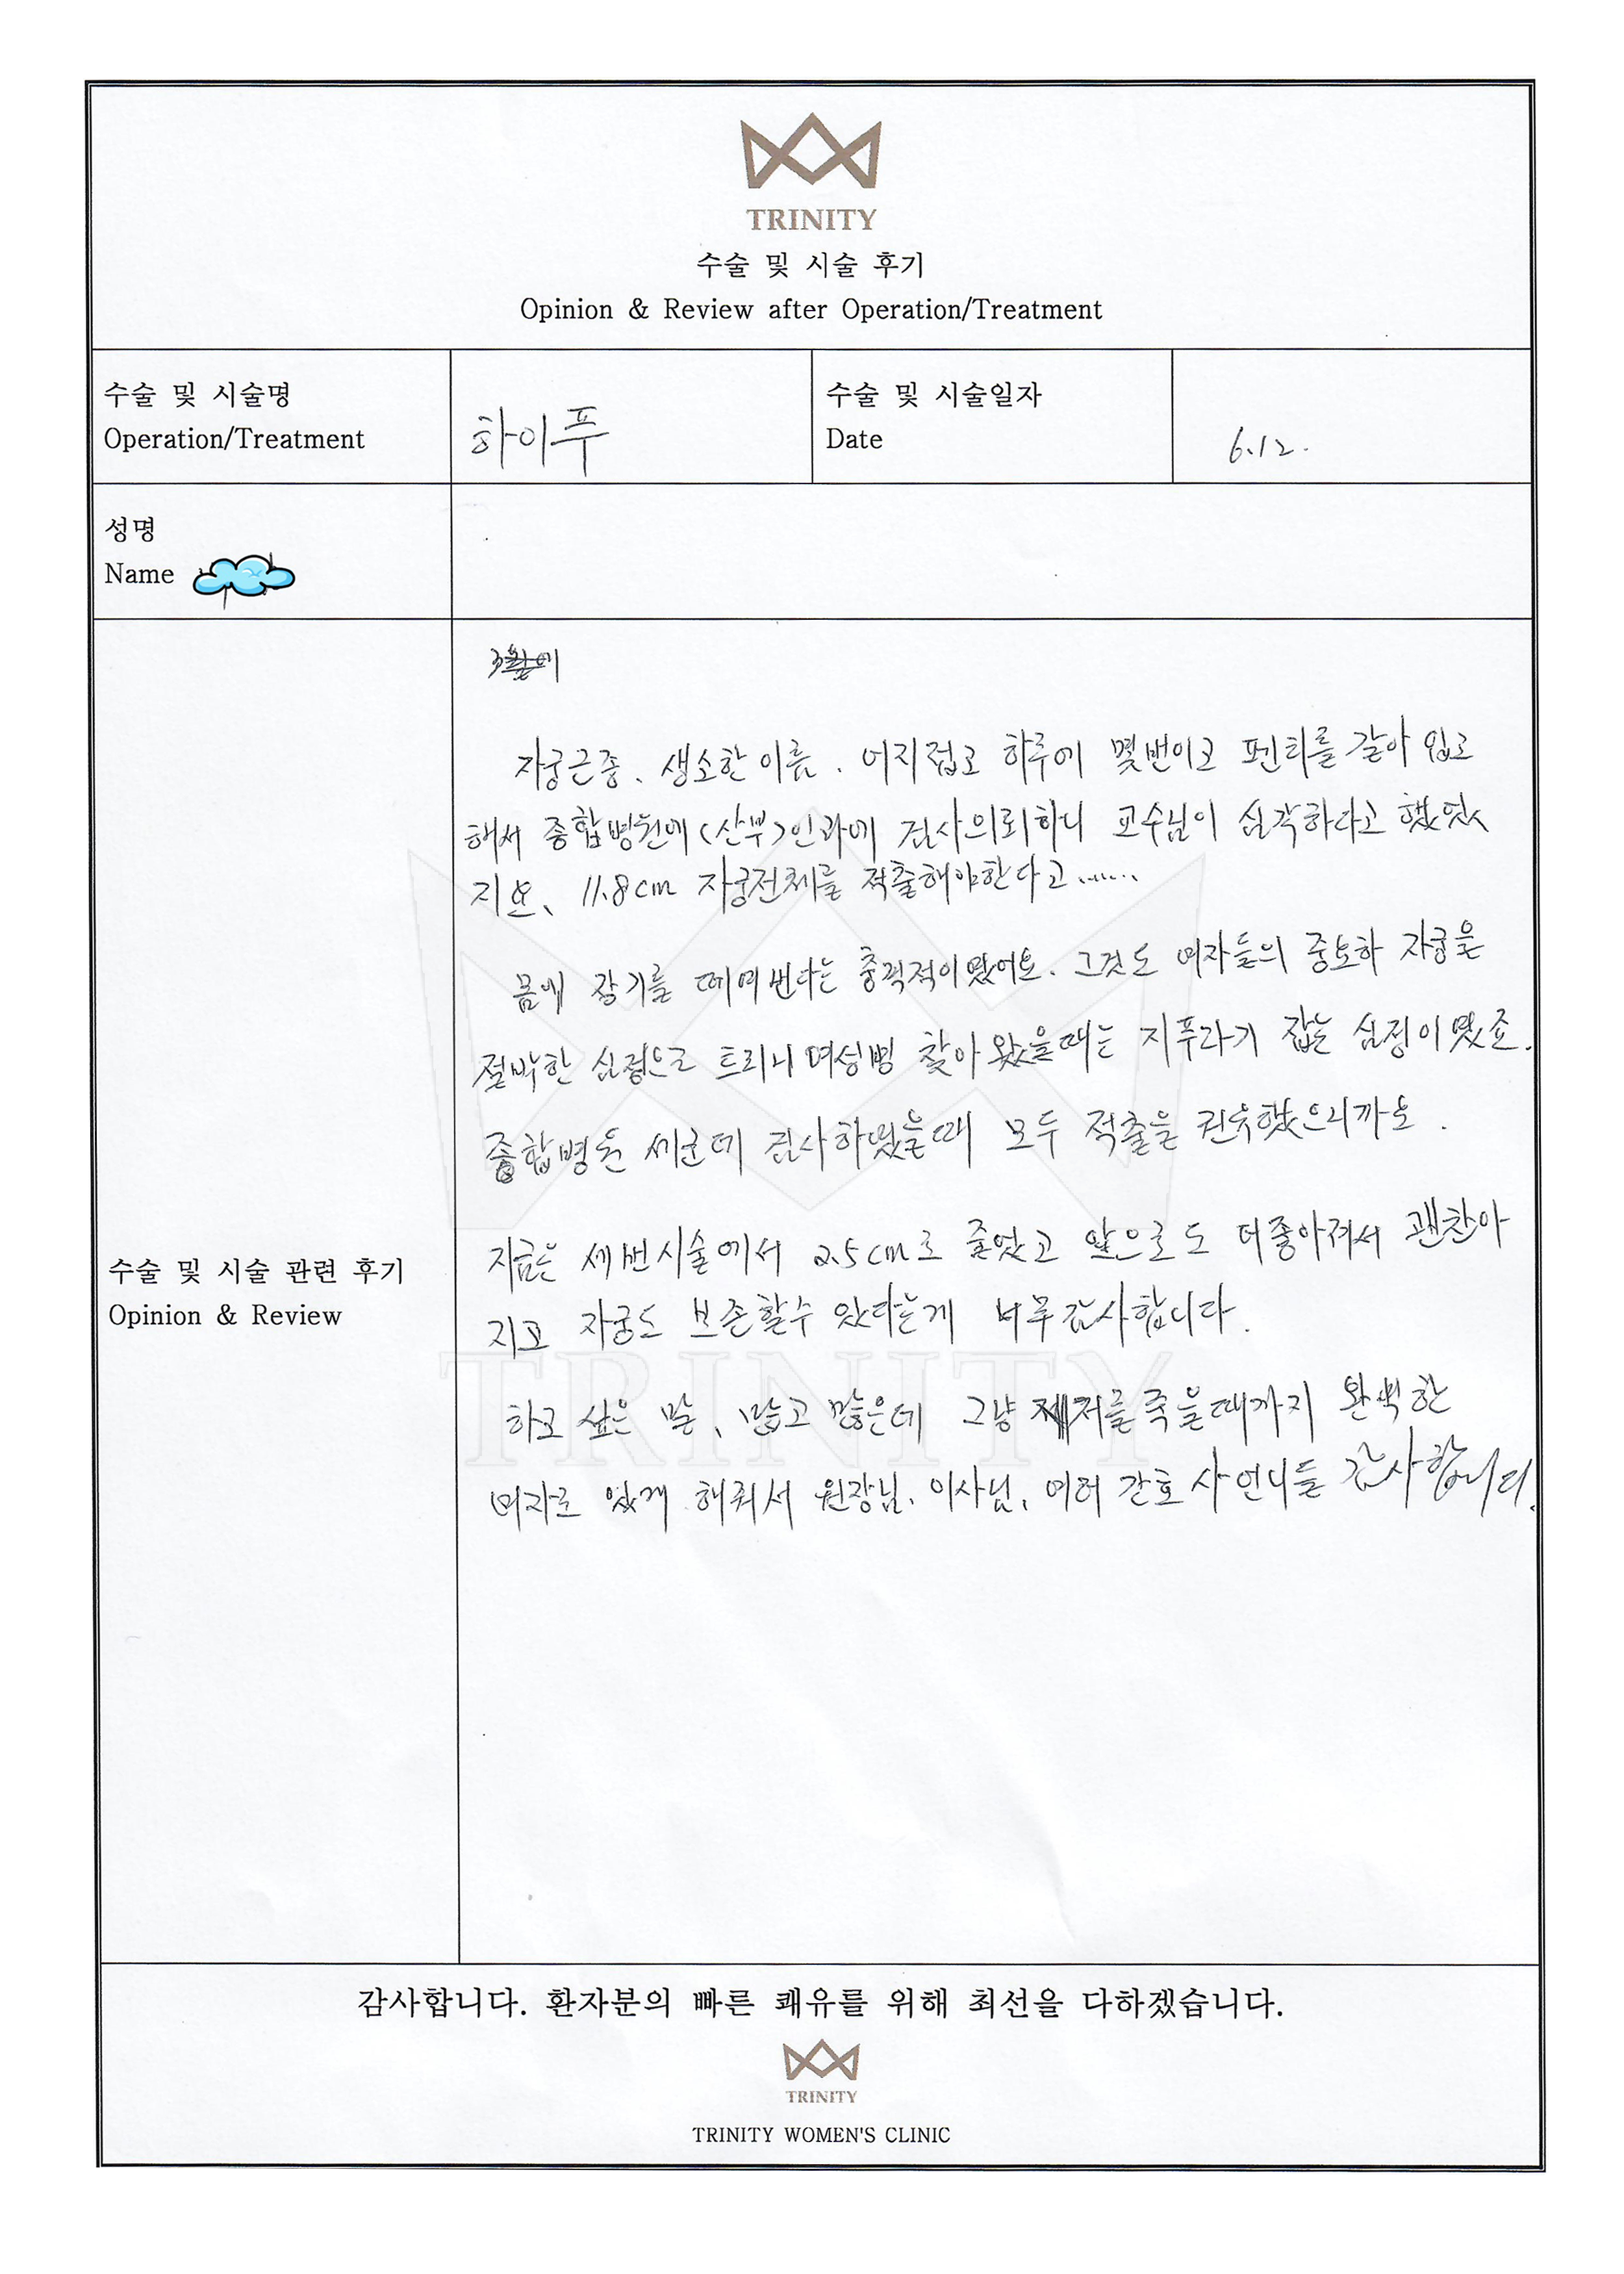 TRINITY
수술 및 시술 후기
Opinion & Review after Operation/Treatment
수술 및 시술명
Operation/Treatment
하이푸
수술 및 시술일자
Date
6.12.
성명
Name
자궁근종、생소한 이름. 어지접고 하루에 몇번이고 펜티를 갈아 입고
해서 종합병원에 (산부)인과에 검사의뢰하니 교수님이 심각하다고 했었
지요、11.8cm 자궁전체를 적출해야한다고......
몸에 장기를 떼여 번다는 충격적이였어요. 그것도 여자들의 중요하 자궁을
절박한 심정으로 트리니 여성병 찾아 왔을때는 지푸라기 잡는 심정이였죠.
종합병원 세군데 검사하였을때 모두 적출을 권유했으니까요.
지금은 세번시술에서 2.5cm로 줄었고 앞으로도 더좋아져서 괜찬아
지고 자궁도 보존할수 있다는게 너무감사합니다.
하고 싶은 말、많고 많은데 그냥 저를죽을때까지 완벽한
여자로 있게 해줘서 원장님、이사님、여러 간호사언니들 감사합니다.
수술 및 시술 관련 후기
Opinion & Review
TRINITY
감사합니다. 환자분의 빠른 쾌유를 위해 최선을 다하겠습니다.
TRINITY
TRINITY WOMEN'S CLINIC